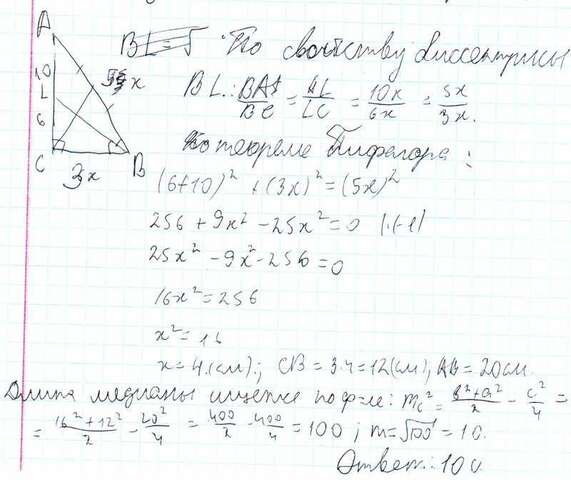 A
10
L
6
C
B
5x
3x
По свойству биссектрисы
BL: BA/BC = AL/LC = 10x/6x = 5x/3x.
По теореме Пифагора:
(6+10)² + (3x)² = (5x)²
256 + 9x² - 25x² = 0 |·(-1)
25x² - 9x² - 256 = 0
16x² = 256
x² = 16
x = 4.(см).; CB = 3·4 = 12(см), AB = 20см.
Длина медианы ищется по ф-ле: m_c² = (b²+a²)/2 - c²/4 =
= (16²+12²)/2 - 20²/4 = 400/2 - 400/4 = 100; m = √100 = 10.
Ответ: 10